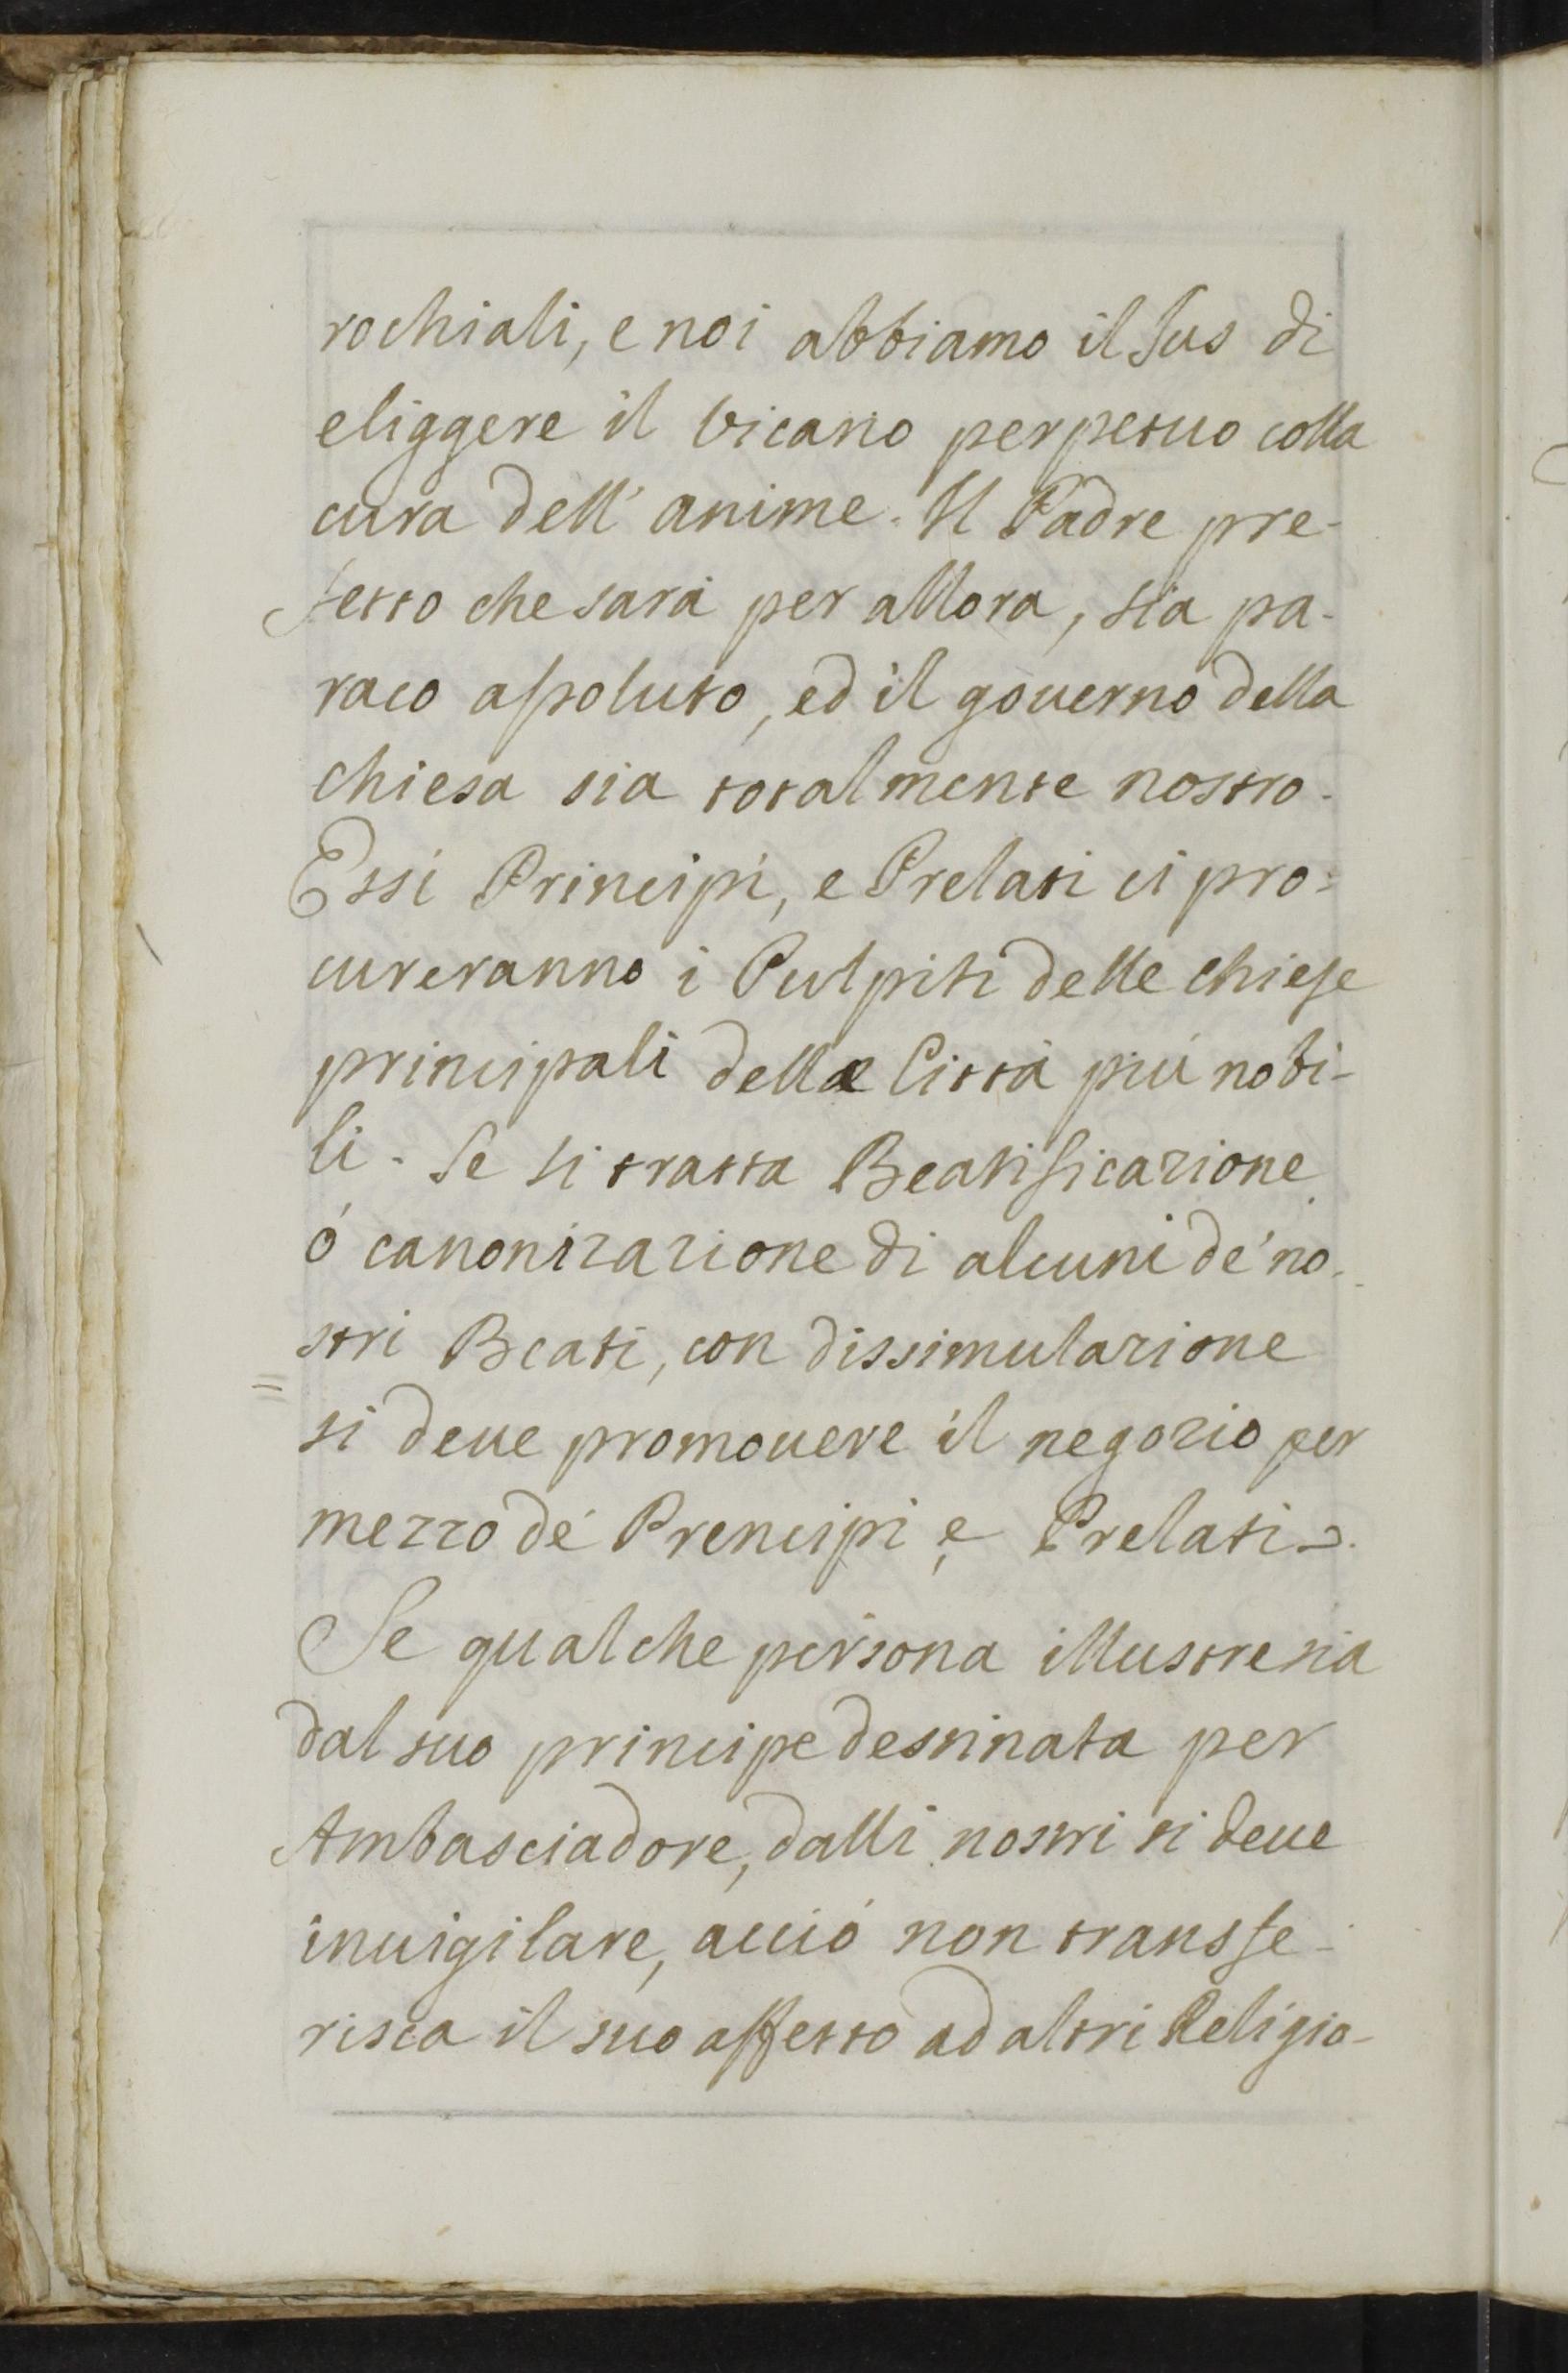 rochiali, e noi abbiamo il Jus di
eliggere il Vicario perpetuo colla
cura dell' anime. Il Padre pre-
fetto che sarà per allora, sia pa-
raco assoluto, ed il gouerno della
chiesa sia totalmente nostro.
Essi Principi, e Prelati ci pro-
cureranno i Pulpiti delle chiese
principali delle Città più nobi-
li. Se si tratta Beatificazione
ó canonizazione di alcuni de' no-
stri Beati, con dissimulazione
si deue promouere il negozio per
mezzo de' Prencipi e Prelati.
Se qualche persona illustre sia
dal suo principe destinata per
Ambasciadore, dalli nostri si deue
inuigilare, acció non transfe-
risca il suo affetto ad altri Religio-